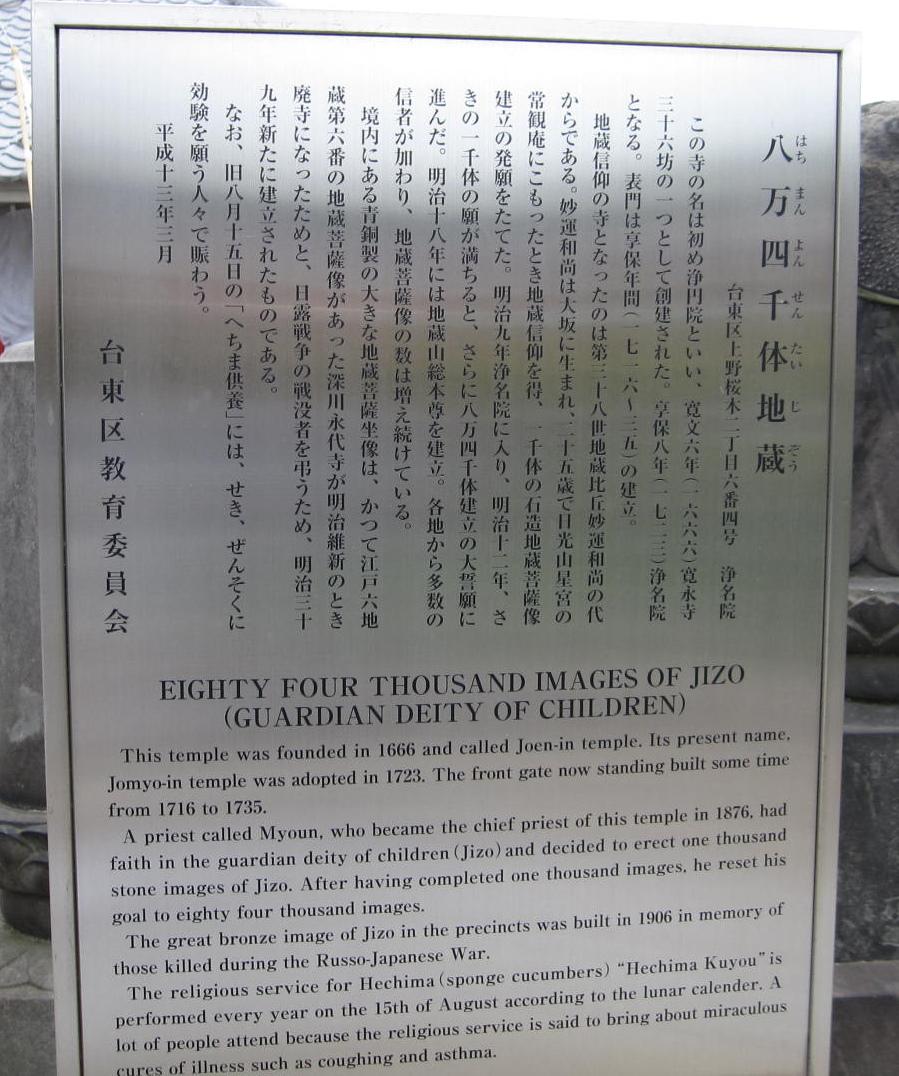 八万四千体地蔵
はち まん よん せん たい じ ぞう
台東区上野桜木二丁目六番四号 浄名院
この寺の名は初め浄円院といい、寛文六年(一六六六)寛永寺
三十六坊の一つとして創建された。享保八年(一七二三)浄名院
となる。表門は享保年間(一七一六〜三五)の建立。
地蔵信仰の寺となったのは第三十八世地蔵比丘妙運和尚の代
からである。妙運和尚は大坂に生まれ、二十五歳で日光山星宮の
常観庵にこもったとき地蔵信仰を得、一千体の石造地蔵菩薩像
建立の発願をたてた。明治九年浄名院に入り、明治十二年、さ
きの一千体の願が満ちると、さらに八万四千体建立の大誓願に
進んだ。明治十八年には地蔵山総本尊を建立。各地から多数の
信者が加わり、地蔵菩薩像の数は増え続けている。
境内にある青銅製の大きな地蔵菩薩坐像は、かつて江戸六地
蔵第六番の地蔵菩薩像があった深川永代寺が明治維新のとき
廃寺になったためと、日露戦争の戦没者を弔うため、明治三十
九年新たに建立されたものである。
なお、旧八月十五日の「へちま供養」には、せき、ぜんそくに
効験を願う人々で賑わう。
平成十三年三月
台東区教育委員会
EIGHTY FOUR THOUSAND IMAGES OF JIZO
(GUARDIAN DEITY OF CHILDREN)
This temple was founded in 1666 and called Joen-in temple. Its present name,
Jomyo-in temple was adopted in 1723. The front gate now standing built some time
from 1716 to 1735.
A priest called Myoun, who became the chief priest of this temple in 1876, had
faith in the guardian deity of children (Jizo) and decided to erect one thousand
stone images of Jizo. After having completed one thousand images, he reset his
goal to eighty four thousand images.
The great bronze image of Jizo in the precincts was built in 1906 in memory of
those killed during the Russo-Japanese War.
The religious service for Hechima (sponge cucumbers) "Hechima Kuyou" is
performed every year on the 15th of August according to the lunar calender. A
lot of people attend because the religious service is said to bring about miraculous
cures of illness such as coughing and asthma.